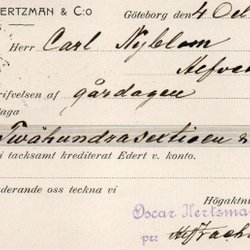 ERTZMAN & C:o Göteborg den 4 Oct
Herr Carl Nyblom
rifvelsen af gårdagen
taga
Tvåhundrasextioen
i tacksamt krediterat Edert v. konto.
nderande oss teckna vi
Högaktn
Oscar Hertzma
pr: